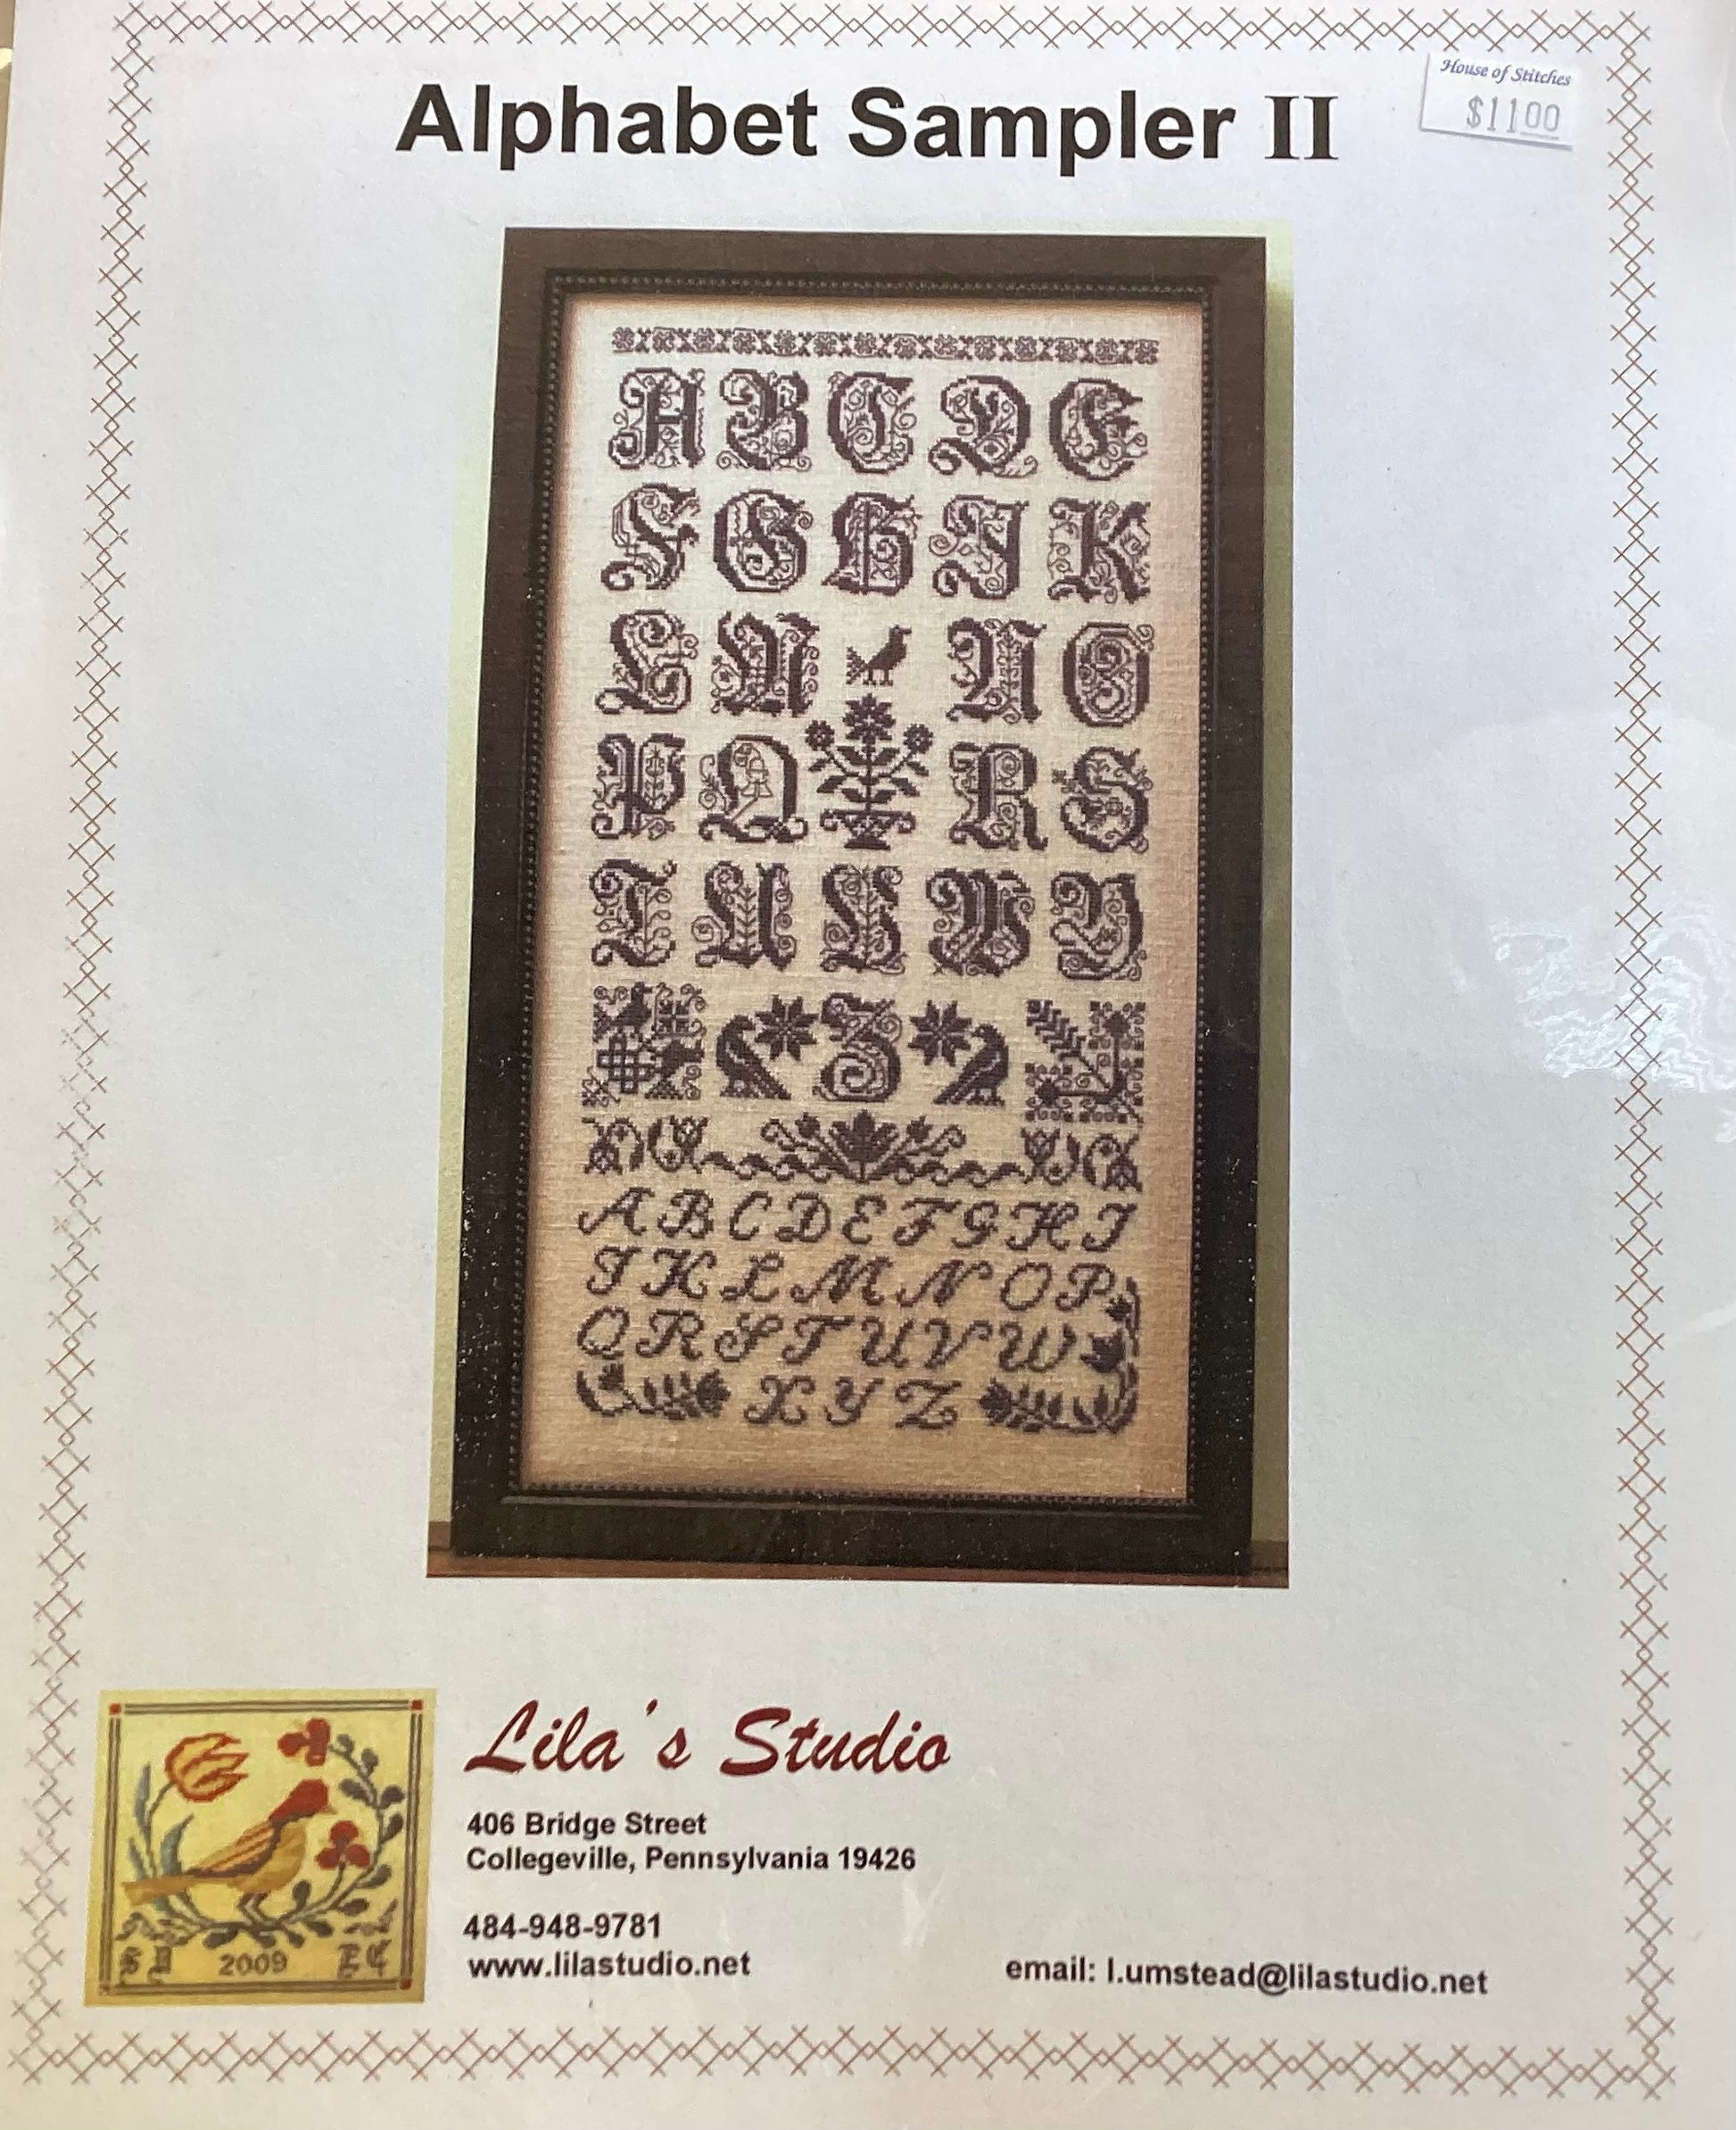 Alphabet Sampler II
House of Stitches
$11.00
A B C D E
F G H I K
L M N O
P Q R S
T U W Y
Z
A B C D E F G H I
J K L M N O P
Q R S T U V W
X Y Z
Lila's Studio
406 Bridge Street
Collegeville, Pennsylvania 19426
484-948-9781
www.lilastudio.net
email: l.umstead@lilastudio.net
2009